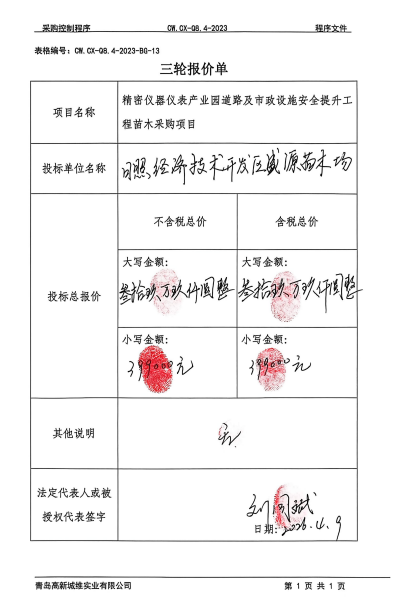 采购控制程序 CW.CX-Q8.4-2023 程序文件
表格编号：CW.CX-Q8.4-2023-BG-13
三轮报价单
项目名称
精密仪器仪表产业园道路及市政设施安全提升工
程苗木采购项目
投标单位名称
日照经济技术开发区盛源苗木场
投标总报价
不含税总价 含税总价
大写金额： 大写金额：
叁拾玖万玖仟圆整 叁拾玖万玖仟圆整
小写金额： 小写金额：
399000元 399000元
其他说明
无
法定代表人或被
授权代表签字
日期：2026.4.9
青岛高新城维实业有限公司 第 1 页 共 1 页